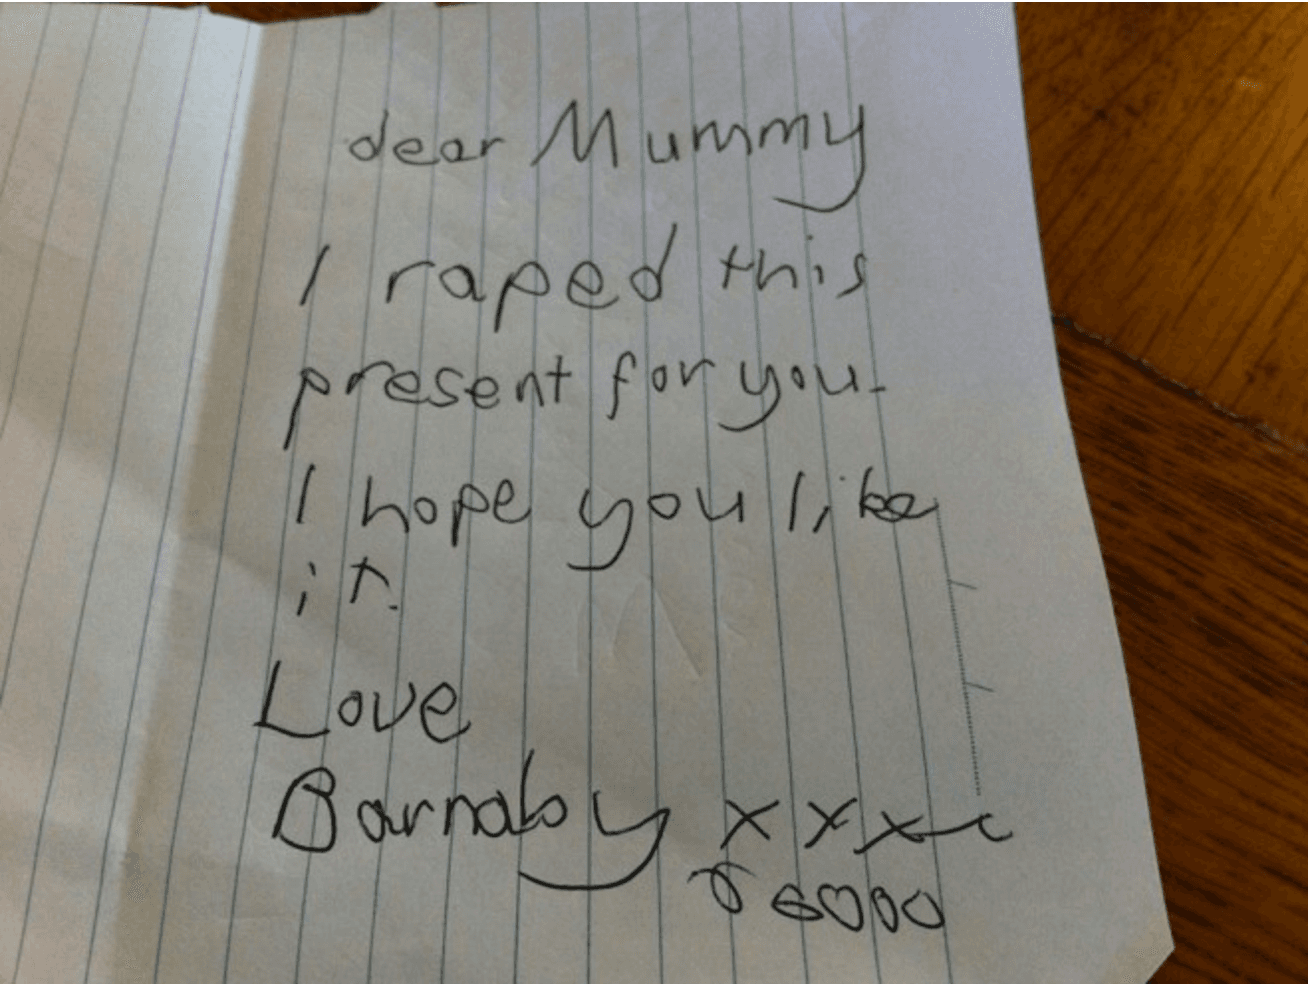 dear Mummy
I raped this
present for you.
I hope you like
it.
Love
Barnaby xxxx